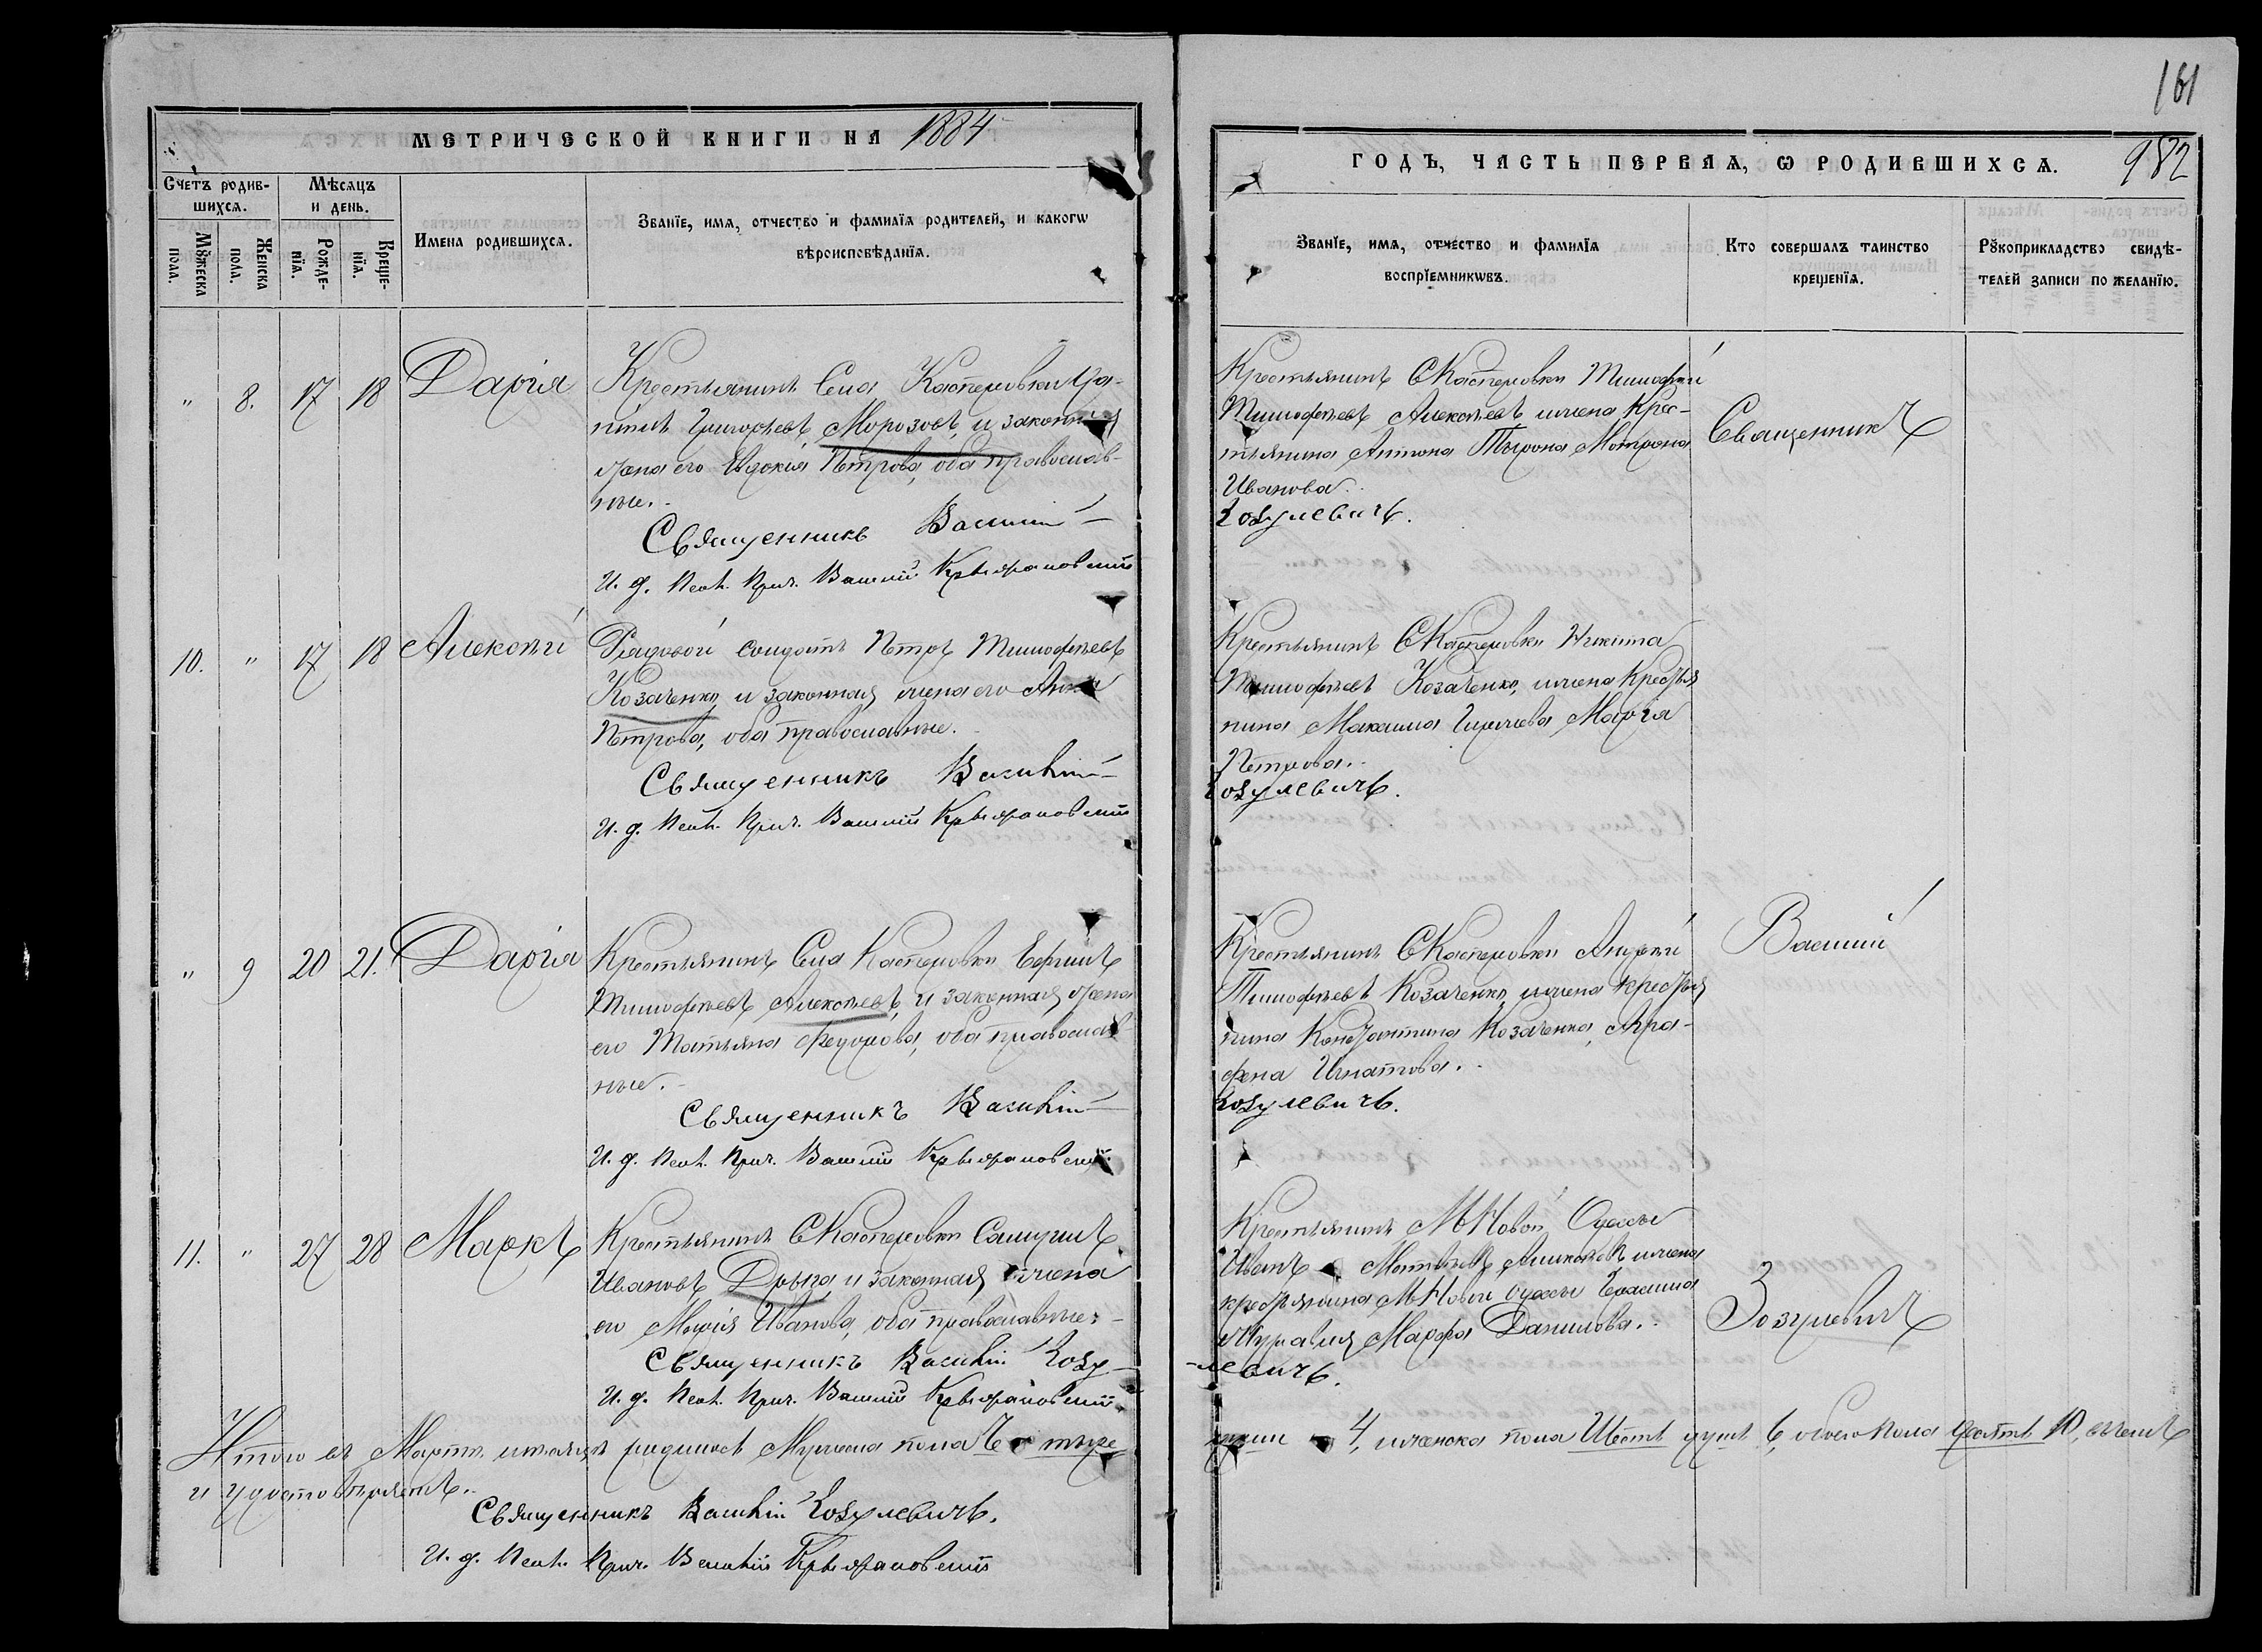 161
МЕТРИЧЕСКОЙ КНИГИ НА 1884
ГОДЪ, ЧАСТЬ ПЕРВАЯ, Ѡ РОДИВШИХСѦ. 982
Счетъ родив-
шихсѧ.
Мѣсѧцъ
и день.
Мꙋжеска
пола.
Женска
пола.
Рожде-
нїѧ.
Креще-
нїѧ.
Имена родившихсѧ.
Званїе, имѧ, отчество и фамилїѧ родителей, и какогѡ
вѣроисповѣданїѧ.
Званїе, имѧ, отчество и фамилїѧ
воспрїемникѡвъ.
Кто совершалъ таинство
крещенїѧ.
Рꙋкоприкладство свидѣ-
телей записи по желанїю.
" 8. 17 18 Дарія
Крестьянинъ Села Касперовки
Григорьевъ Морозовъ, и законная
жена его Евдокія Петрова, оба православ-
ные.
Священникъ Василій
И. д. Псал. Прич. Василій Крыжановскій
Крестьянинъ С Касперовки Тимофей
Тимофѣевъ Алексѣевъ и жена Крес-
тьянина Антона Матрона
Иванова.
Зозулевичъ.
Священникъ
10. " 17 18 Алексѣй
Рядовой солдатъ Петръ Тимофѣевъ
Козаченко, и законная жена его Анна
Петрова, оба православные.
Священникъ Василій
И. д. Псал. Прич. Василій Крыжановскій
Крестьянинъ С Касперовки Никита
Тимофѣевъ Козаченко, и жена Крестья
нина Максима Марія
Петрова.
Зозулевичъ.
" 9 20 21. Дарія
Крестьянинъ Села Касперовки
Тимофѣевъ Алексѣевъ, и законная жена
его Татьяна Федорова, оба православ
ные.
Священникъ Василій
И. д. Псал. Прич. Василій Крыжановскій
Крестьянинъ С Касперовки Андрей
Тимофѣевъ Козаченко, и жена крестья
нина Константина Козаченка, Агра-
фена Игнатова.
Зозулевичъ.
Василій
11. " 27 28 Маркъ
Крестьянинъ С Касперовки Самуилъ
Ивановъ и законная жена
его Марія Иванова, оба православные.
Священникъ Василій Зозу-
И. д. Псал. Прич. Василій Крыжановскій
Крестьянинъ М Новой Одессы
Иванъ и жена
крестьянина М Новой Одессы Герасима
Журавля Марфа Данилова.
-левичъ.
Зозулевичъ
Итого въ Мартѣ мѣсяцѣ родилось Мужеска пола Четыре
души 4, женска пола Шесть душъ 6, обоего пола десять 10, въ чемъ
и удостовѣряемъ.
Священникъ Василій Зозулевичъ.
И. д. Псал. Прич. Василій Крыжановскій